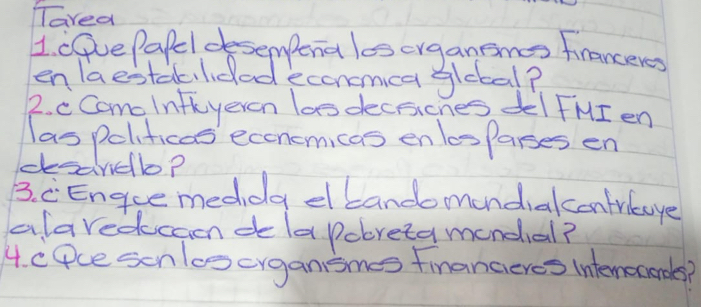 Tarea
1. ¿Que Papel desempeña los organismos financeros
en la estabilidad economica global?
2. ¿ Como Influyeron las decisiones del FMI en
las politicas economicas en los Paises en
desarrollo?
3. ¿ En que medida el bando mundial contribuye
a la reduccion de la pobreza mundial?
4. ¿ Que son los organismos financieros internacionales?